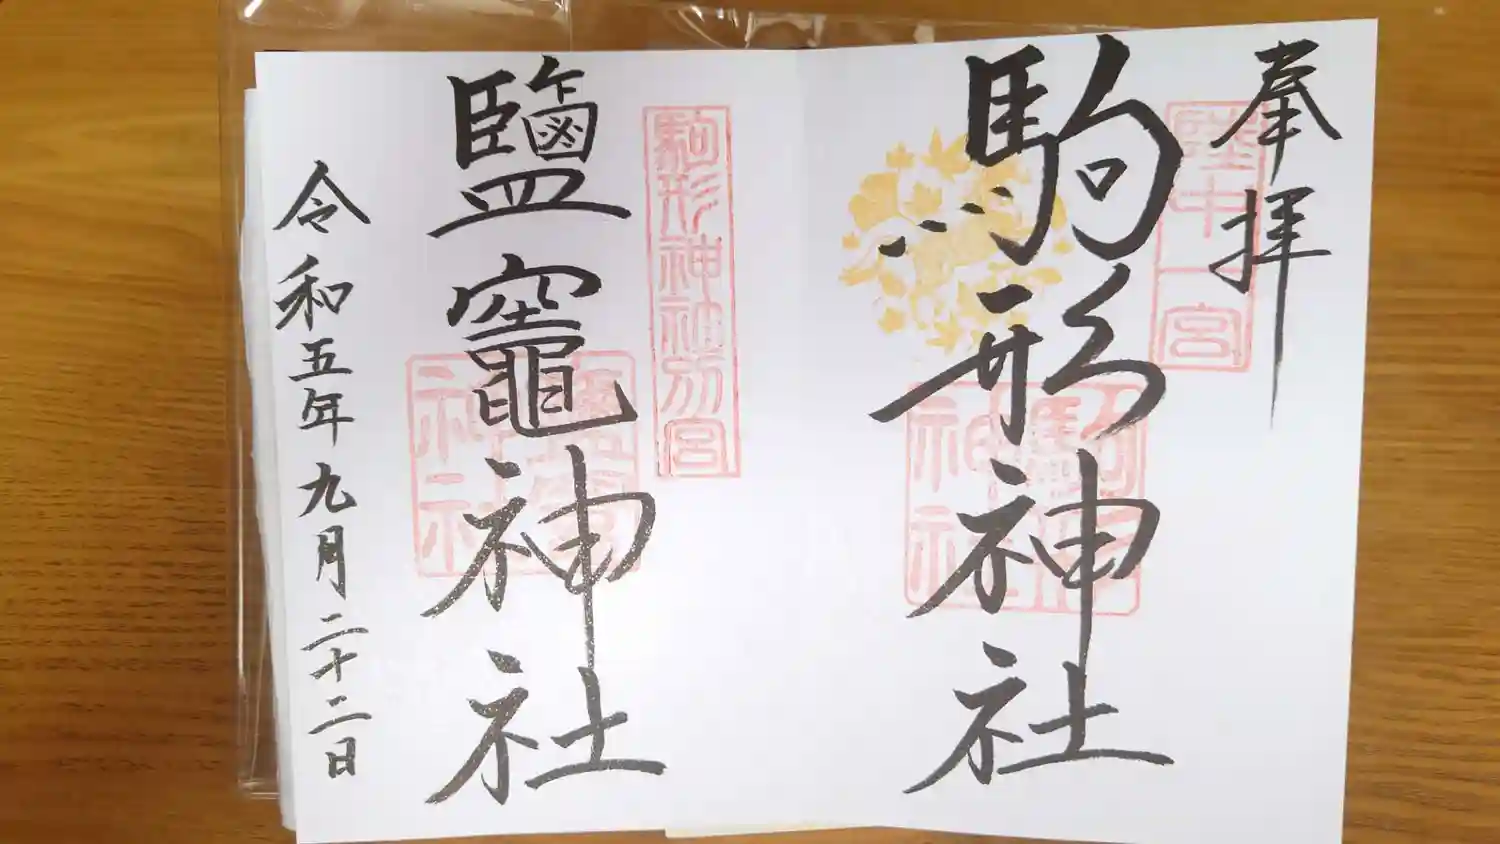 奉拝
陸中一宮
駒形神社
駒形神社
駒形神社別宮
鹽竈神社
鹽竈神社
令和五年九月二十二日